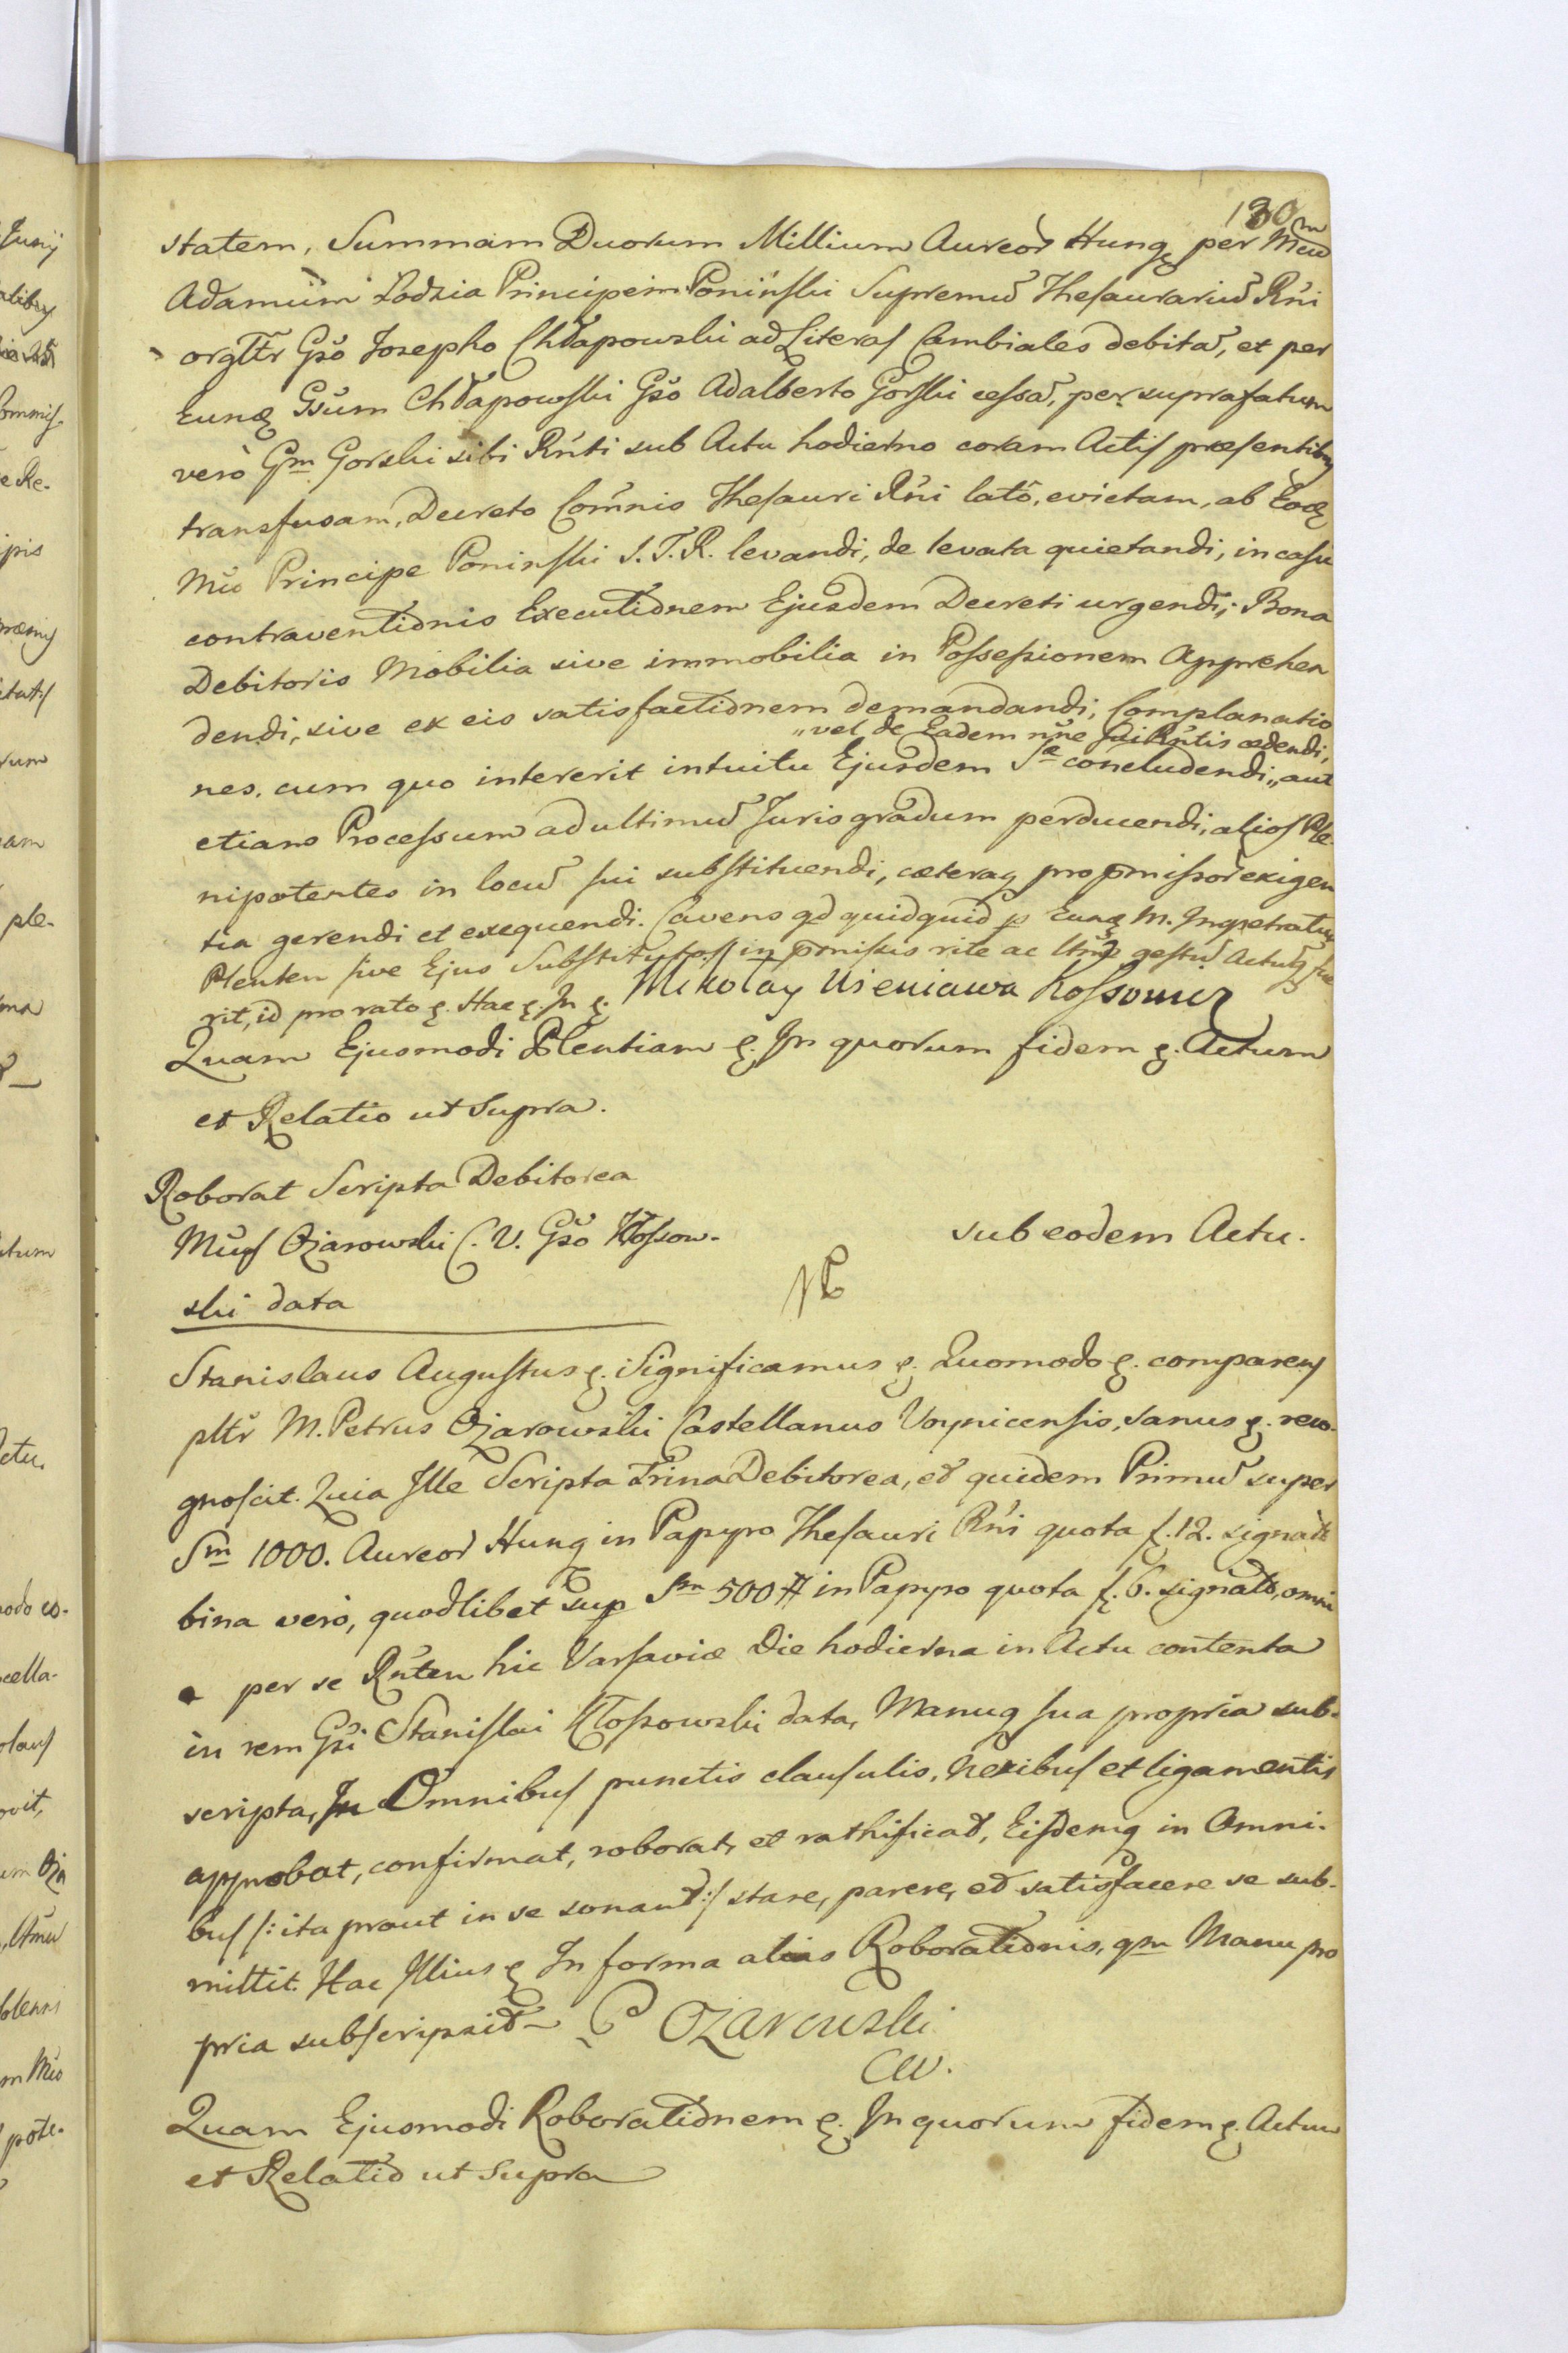 130
statem, Summam Duorum Millium Aureor Hung per Mcum
Adamum Lodzia Principem Poninski Supremu Thesaurariu Rni
orgltr Gso Josepho Chłapowski ad Literas Cambiales debita, et per
Eunq Gsum Chłapowski Gso Adalberto Gorski cessa, per suprafatum
vero Gm Gorski sibi Rnti sub Actu hodierno coram Actis præsentibq
transfusam, Decreto Comnis Thesauri Rni lato, evictam, ab Eoq
Mco Principe Poninski S. T. R. levandi, de levata quietandi, in casu
contraventionis Executionem Ejusdem Decreti urgendi; Bona
Debitoris Mobilia sive immobilia in Possessionem Apprehen
dendi, sive ex eis satisfactionem demandandi, Complanatio
„vel de Eadem nne sui Rntis cedendi,
nes, cum quo intererit intuitu Ejusdem Sæ concludendi, „aut
etiam Processum ad ultimu Juris gradum perducendi, alios Ple-
nipotentes in locu sui substituendi, cæteraq pro pmissor exigen
tia gerendi et exequendi. Cavens qd quidquid p Eunq M. Impetratu
Plenten sive Ejus Substitutos in pmissis rite ac ltme gestu Actuq fue
rit, id pro rato &. Hac &. In &. Mikołay Usieniawa Kossowicz
Quam Ejusmodi Plentiam &. In quorum fidem &. Actum
et Relatio ut Supra.
Roborat Scripta Debitorea
Mcus Ożarowski C. V. Gso Kłossow-
ski data
sub eodem Actu.
Stanislaus Augustus &. Significamus &. Quomodo &. comparens
pltr M. Petrus Ożarowski Castellanus Voynicensis, sanus &. reco-
gnoscit. Quia Ille Scripta Trina Debitorea, et quidem Primu super
Sm 1000. Aureor Hung in Papyro Thesauri Rni quota f. 12. signato
bina vero, quodlibet sup Sm 500 # in Papyro quota f. 6. signato, omni
a per se Rnten hic Varsaviæ Die hodierna in Actu contenta
in rem Gsi Stanislai Kłossowski data, Manuq sua propria sub-
scripta, In Omnibus punctis clausulis, Nexibus et ligamentis
approbat, confirmat, roborat, et rathificat, Eisdemq in Omni-
bus /: ita prout in se sonant :/ stare, parere, et satisfacere se sub-
mittit. Hac Illius & In forma alias Roborationis, qm Manu pro
pria subscripsit P Ożarowski
CW.
Quam Ejusmodi Roborationem &. In quorum fidem &. Actum
et Relatio ut Supra